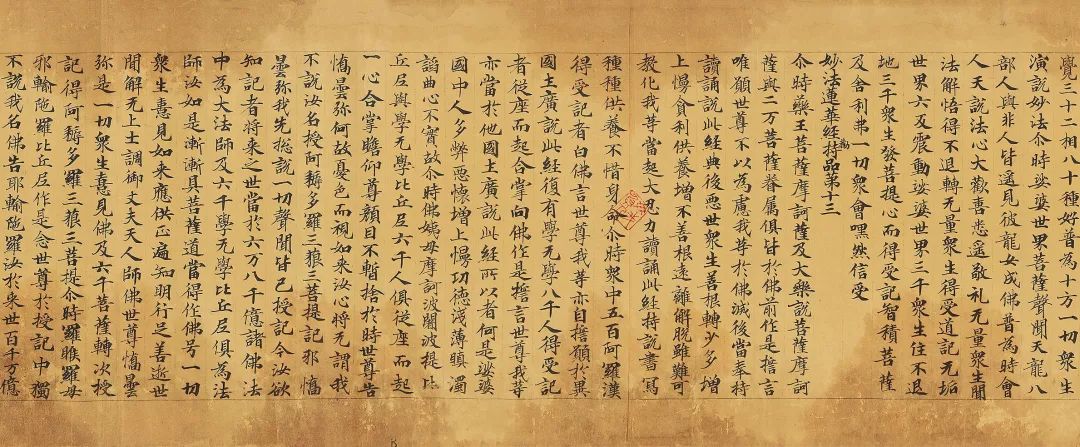 覺三十二相八十種好普為十方一切衆生
演説妙法尒時娑婆世界菩薩聲聞天龍八
部人與非人皆遥見彼龍女成佛普為時會
人天説法心大歡喜悉遥敬礼无量衆生聞
法解悟得不退轉无量衆生得受道記无垢
世界六反震動娑婆世界三千衆生住不退
地三千衆生發菩提心而得受記智積菩薩
及舍利弗一切衆會嘿然信受
妙法蓮華經勸持品第十三
尒時藥王菩薩摩訶薩及大樂説菩薩摩訶
薩與二万菩薩眷属俱皆於佛前作是誓言
唯願世尊不以為慮我等於佛滅後當奉持
讀誦説此經典後惡世衆生善根轉少多增
上慢貪利供養增不善根遠離解脱雖難可
教化我等當起大忍力讀誦此經持説書寫
種種供養不惜身命尒時衆中五百阿羅漢
得受記者白佛言世尊我等亦自誓願於異
國土廣説此經復有學无學八千人得受記
者從座而起合掌向佛作是誓言世尊我等
亦當於他國土廣説此經所以者何是娑婆
國中人多弊惡懷增上慢功德淺薄瞋濁
諂曲心不實故尒時佛姨母摩訶波闍波提比
丘尼與學无學比丘尼六千人俱從座而起
一心合掌瞻仰尊顔目不暫捨於時世尊告
憍曇弥何故憂色而視如来汝心將无謂我
不説汝名授阿耨多羅三藐三菩提記耶憍
曇弥我先捴説一切聲聞皆已授記今汝欲
知記者將来之世當於六万八千億諸佛法
中為大法師及六千學无學比丘尼俱為法
師汝如是漸漸具菩薩道當得作佛号一切
衆生憙見如来應供正遍知明行足善逝世
間解无上士調御丈夫天人師佛世尊憍曇
弥是一切衆生憙見佛及六千菩薩轉次授
記得阿耨多羅三藐三菩提尒時羅睺羅母
耶輸陁羅比丘尼作是念世尊於授記中獨
不説我名佛告耶輸陁羅汝於来世百千万億